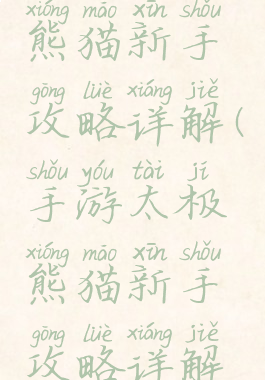 xióng māo xīn shǒu
熊猫新手
gōng lüè xiáng jiě
攻略详解(
shǒu yóu tài jí
手游太极
xióng māo xīn shǒu
熊猫新手
gōng lüè xiáng jiě
攻略详解